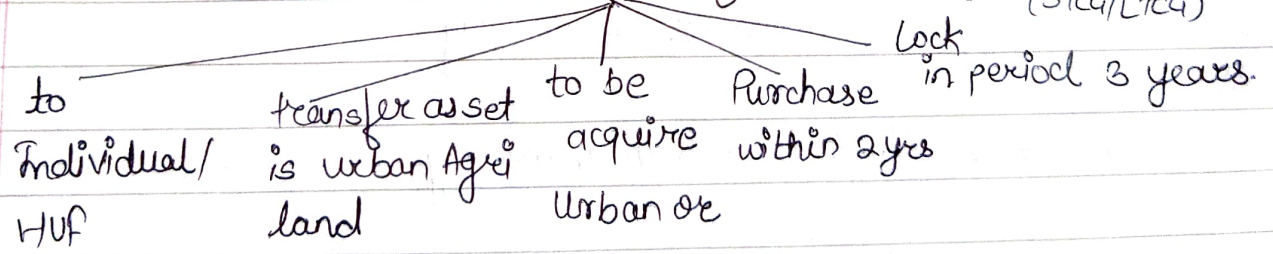 (STCG/LTCG)
to
Individual/
HUF
transfer asset
is urban Agri
land
to be
acquire
Urban or
Purchase
within 2yrs
Lock
in period 3 years.